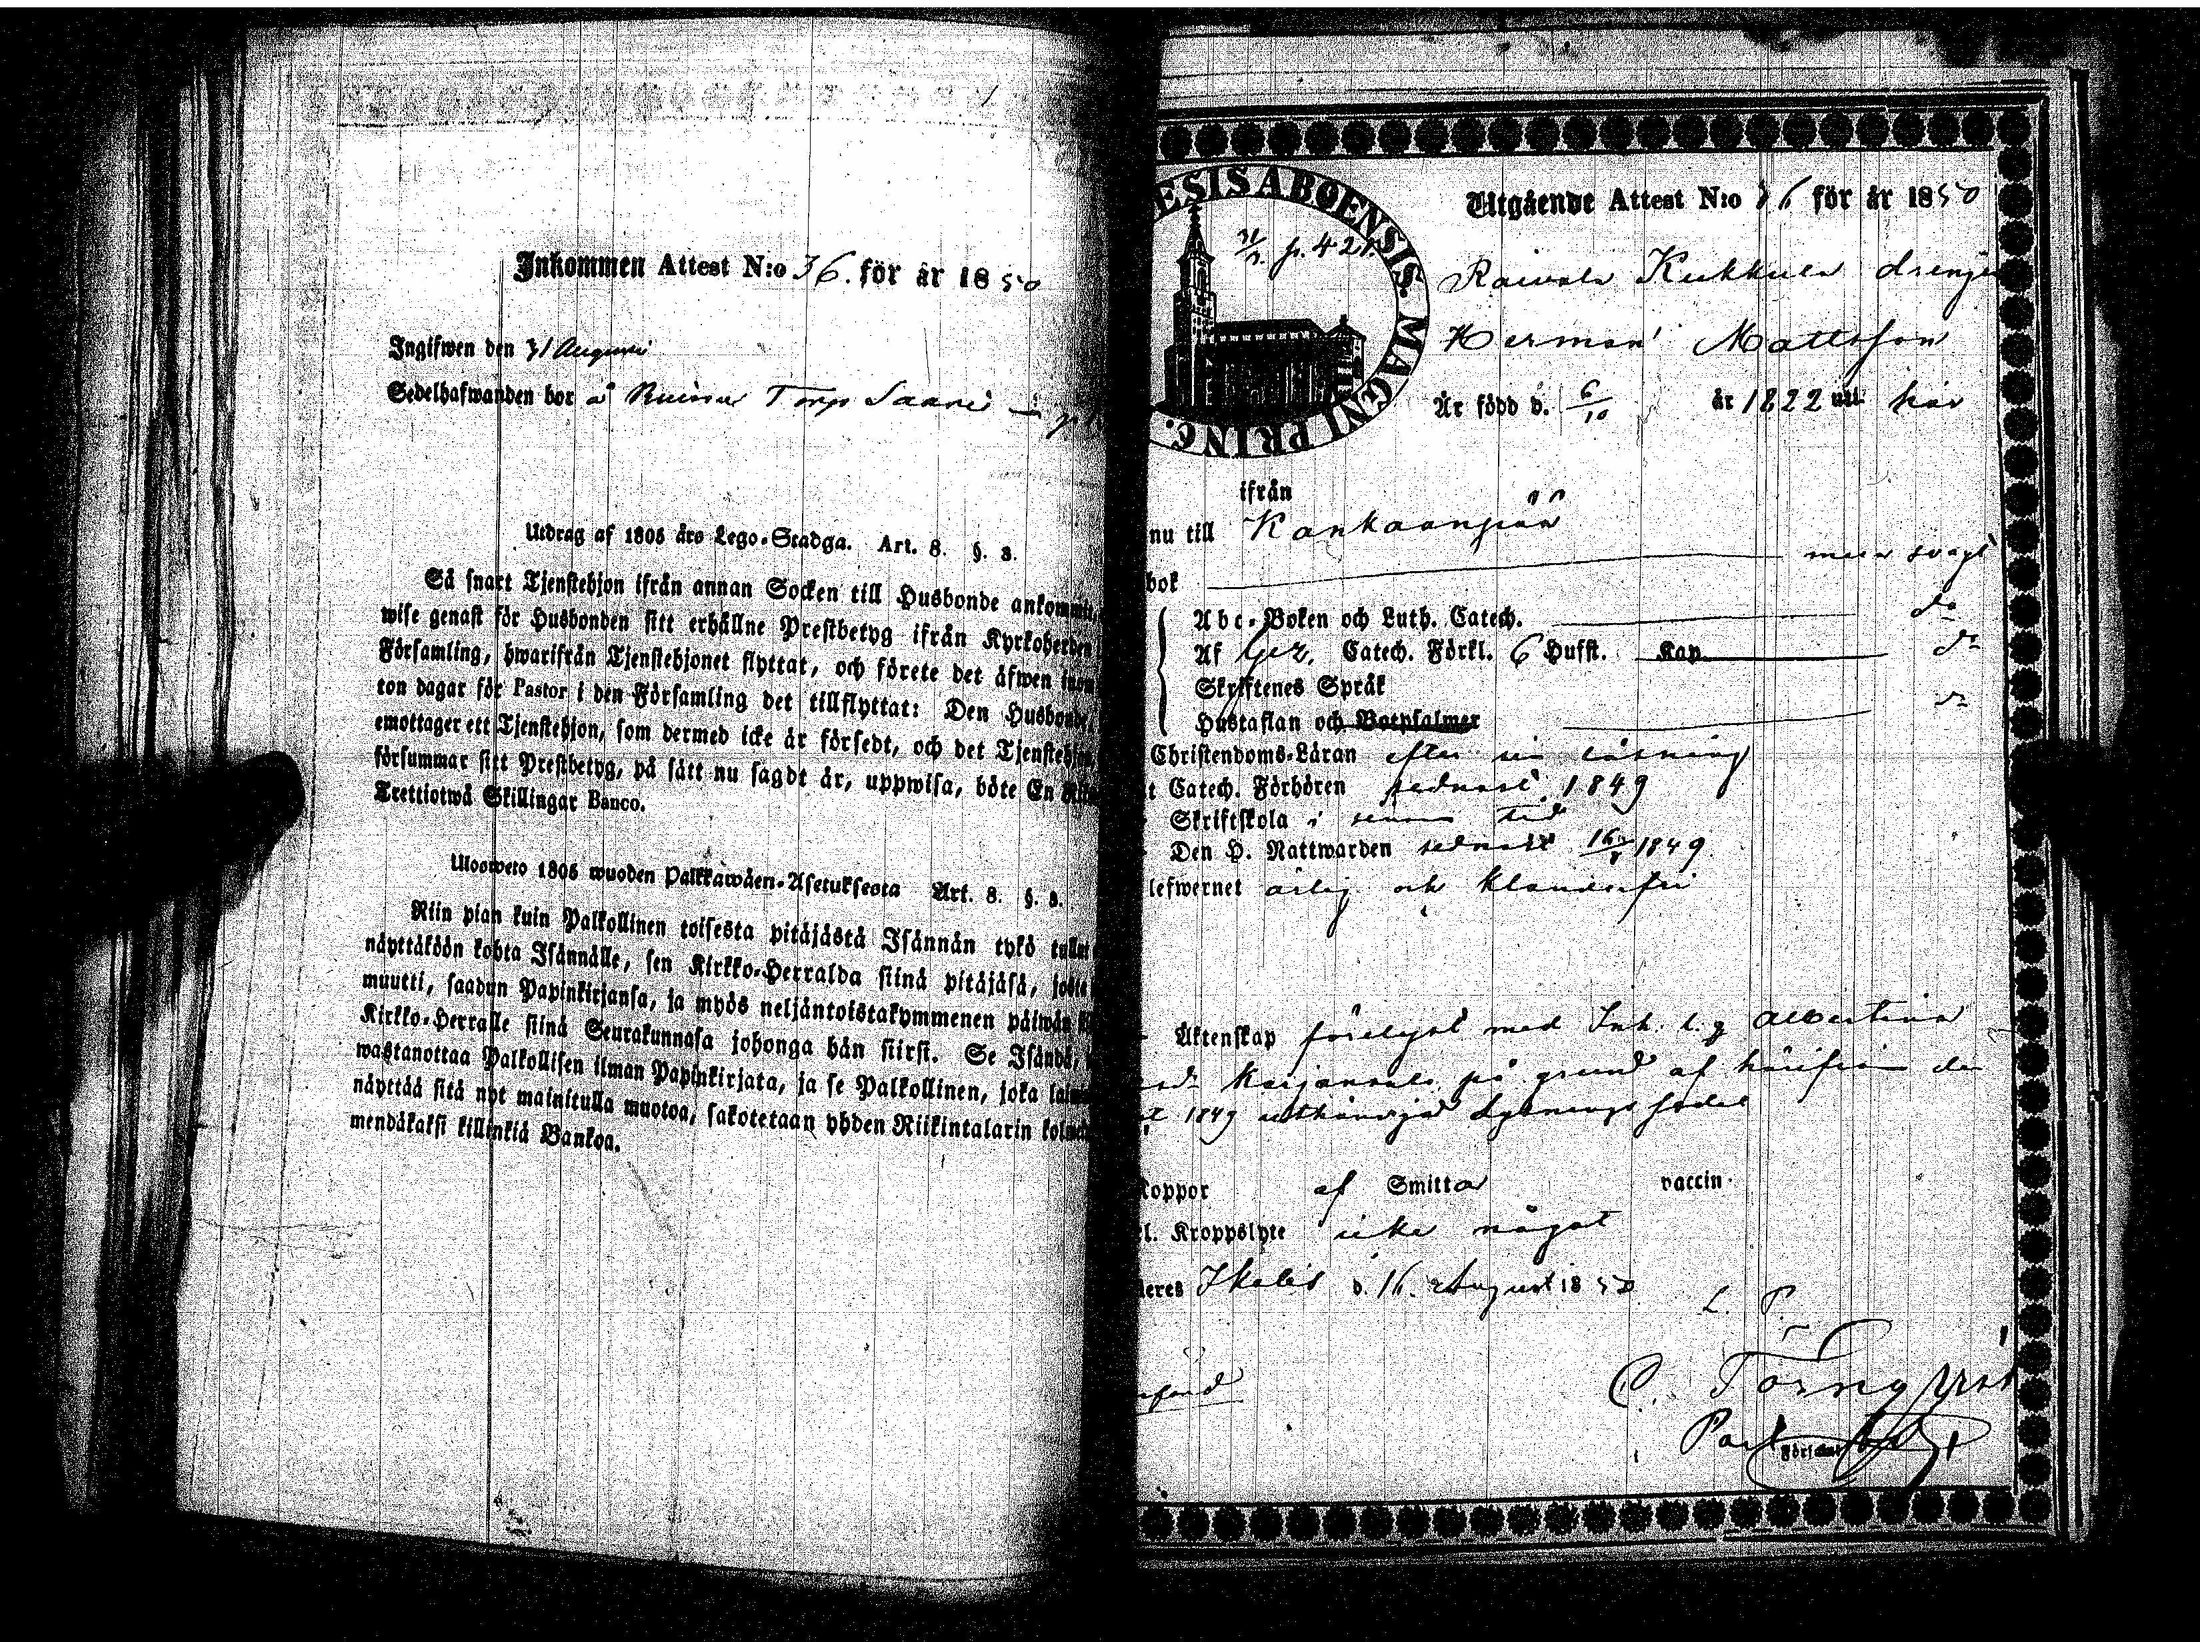 Inkommen Attest N:o 36. för år 1850
Ingifwen den 31 Augusti
Sedelhafwanden bor å Torp Saari
Utdrag af 1805 års Lego-Stadga. Art. 8. §. 3.
Så snart Tjenstehjon ifrån annan Socken till Husbonde ankommit,
wise genast för Husbonden sitt erhållne Prestbetyg ifrån Kyrkoherden
Församling, hwarifrån Tjenstehjonet flyttat, och förete det äfwen inom
ton dagar för Pastor i den Församling det tillflyttat: Den Husbonde,
emottager ett Tjenstehjon, som dermed icke är försedt, och det Tjenstehjon,
försummar sitt Prestbetyg, på sätt nu sagdt är, uppwisa, böte En
Trettiotwå Skillingar Banco.
Ulosweto 1805 wuoden Palkkawäen-Asetuksesta Art. 8. §. 3.
Niin pian kuin Palkollinen toisesta pitäjästä Isännän tykö tullut
näyttäköön kohta Isännälle, sen Kirkko-Herralda siinä pitäjäsä, josta
muutti, saadun Papinkirjansa, ja myös neljäntoistakymmenen päiwän
Kirkko-Herralle siinä Seurakunnasa johonga hän siirsi. Se Isändä,
wastanottaa Palkollisen ilman Papinkirjata, ja se Palkollinen, joka
näyttää sitä nyt mainitulla muotoa, sakotetaan yhden Riikintalarin
mendäkaksi killinkiä Bankoa.
ESIS ABOENSIS. MAGNI PRINC.
p. 421.
Utgående Attest N:o 36 för år 1850
Kukkula drengen
Herman Mattsson
Är född d. 6/10 år 1822 uti här
ifrån
nu till Kankaanpää
bok svagt
Abc-Boken och Luth. Catech. do
Af Catech. Förkl. 6 Hufst. Kap. do
Skriftenes Språk
Hustaflan och Botpsalmer do
Christendoms-Läran efter sin läsning
t Catech. Förhören sednast 1849
Skriftskola i sinom tid
Den H. Nattwarden sednast 1849
lefwernet ärlig och klanderfri
Äktenskap förelyst med Inh. Albertina
på grund af härifrån den
1849 Lysnings sedel
koppor af Smitta vaccin.
l. Kroppslyte icke något
eres Ikalis d. 16 August 1850
L. P.
C. Törnqvist
Församl